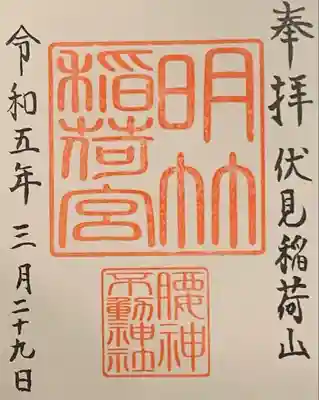 奉拝 伏見稲荷山
明竹
稲荷宮
腰神
不動神社
令和五年 三月二十九日